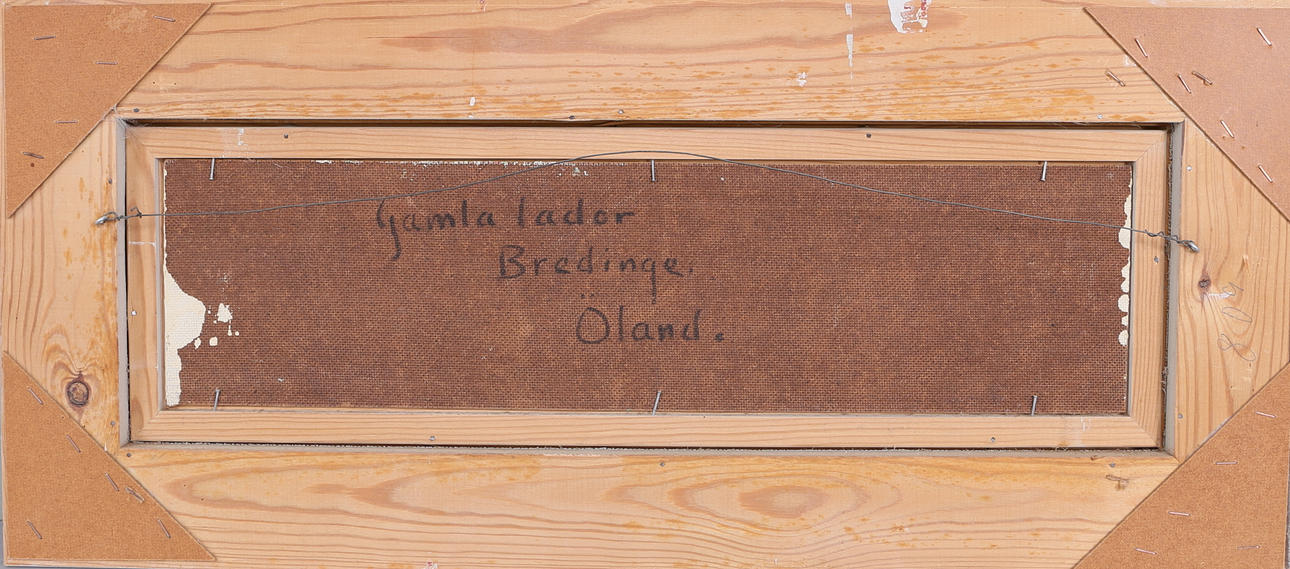 Gamla lador
Bredinge.
Öland.